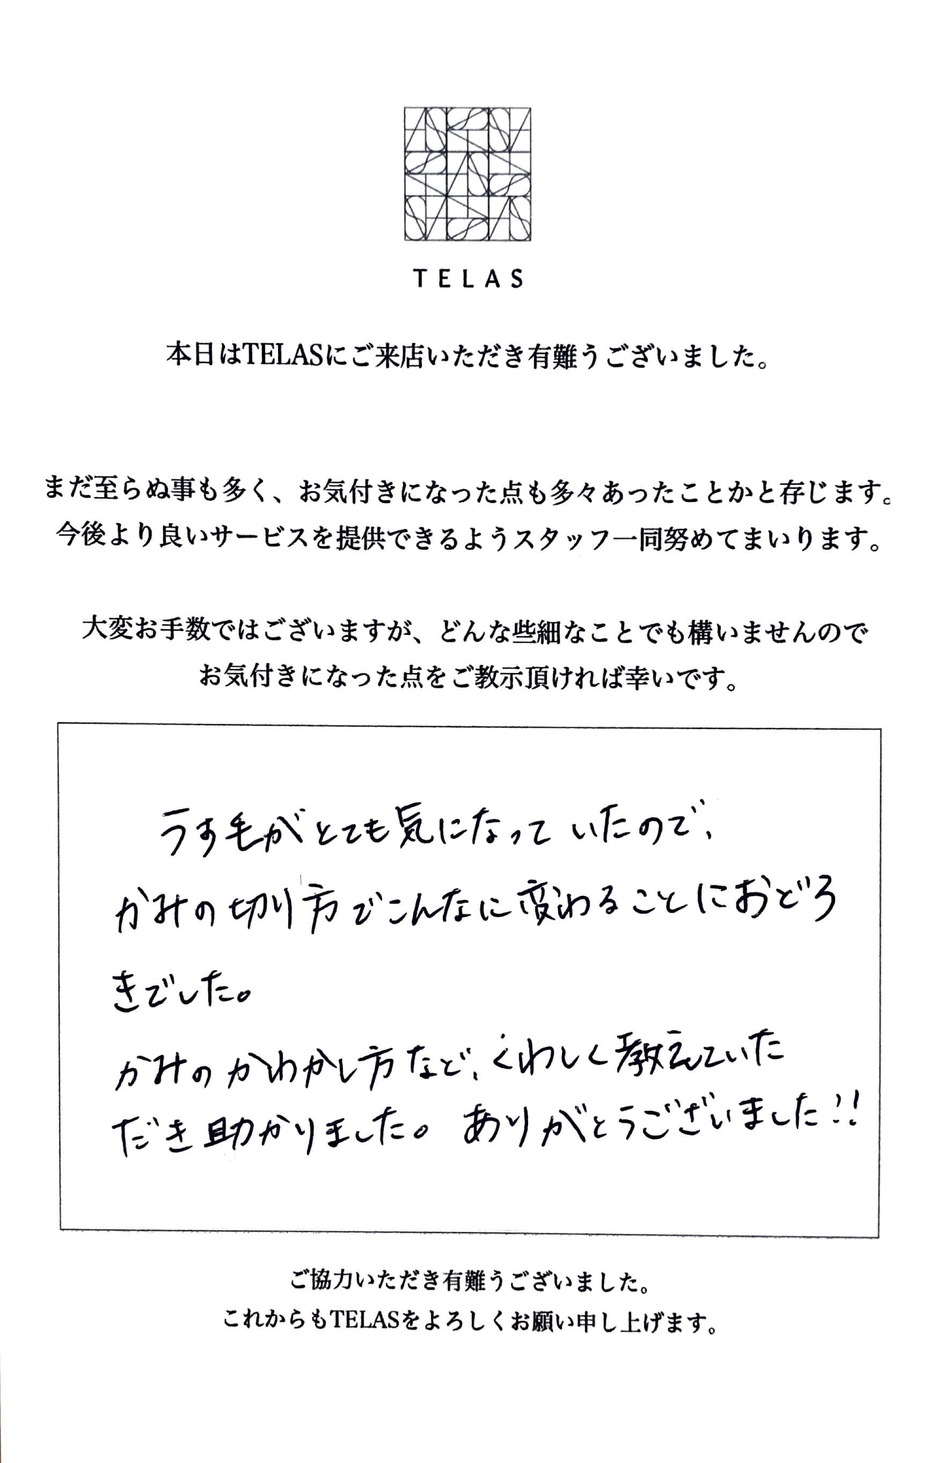 TELAS
本日はTELASにご来店いただき有難うございました。
まだ至らぬ事も多く、お気付きになった点も多々あったことかと存じます。
今後より良いサービスを提供できるようスタッフ一同努めてまいります。
大変お手数ではございますが、どんな些細なことでも構いませんので
お気付きになった点をご教示頂ければ幸いです。
うす毛がとても気になっていたので、
かみの切り方でこんなに変わることにおどろ
きでした。
かみのかわかし方など、くわしく教えていた
だき助かりました。ありがとうございました!!
ご協力いただき有難うございました。
これからもTELASをよろしくお願い申し上げます。